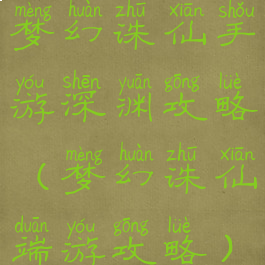 mèng huàn zhū xiān shǒu
梦幻诛仙手
yóu shēn yuān gōng lüè
游深渊攻略
mèng huàn zhū xiān
（梦幻诛仙
duān yóu gōng lüè
端游攻略）